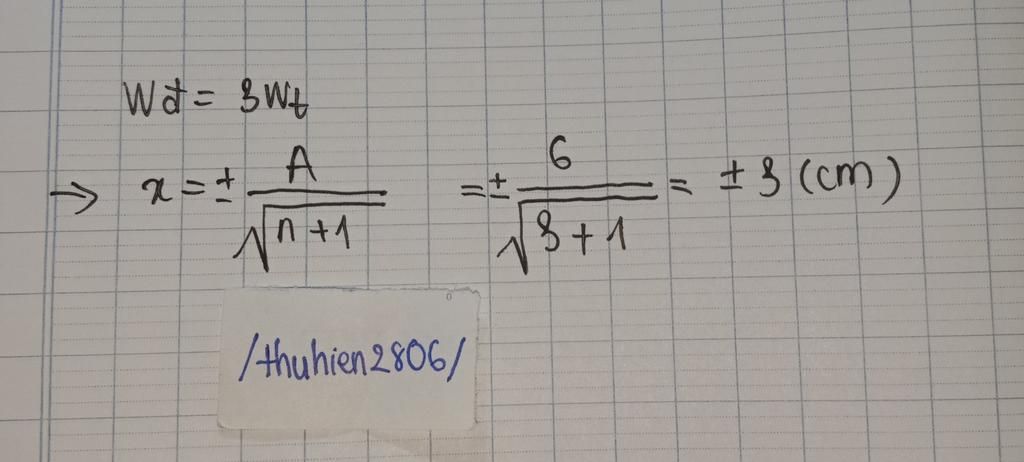 Wđ = 3Wt
→ x = ± A/√(n+1) = ± 6/√(3+1) = ± 3 (cm)
/thuhien2806/